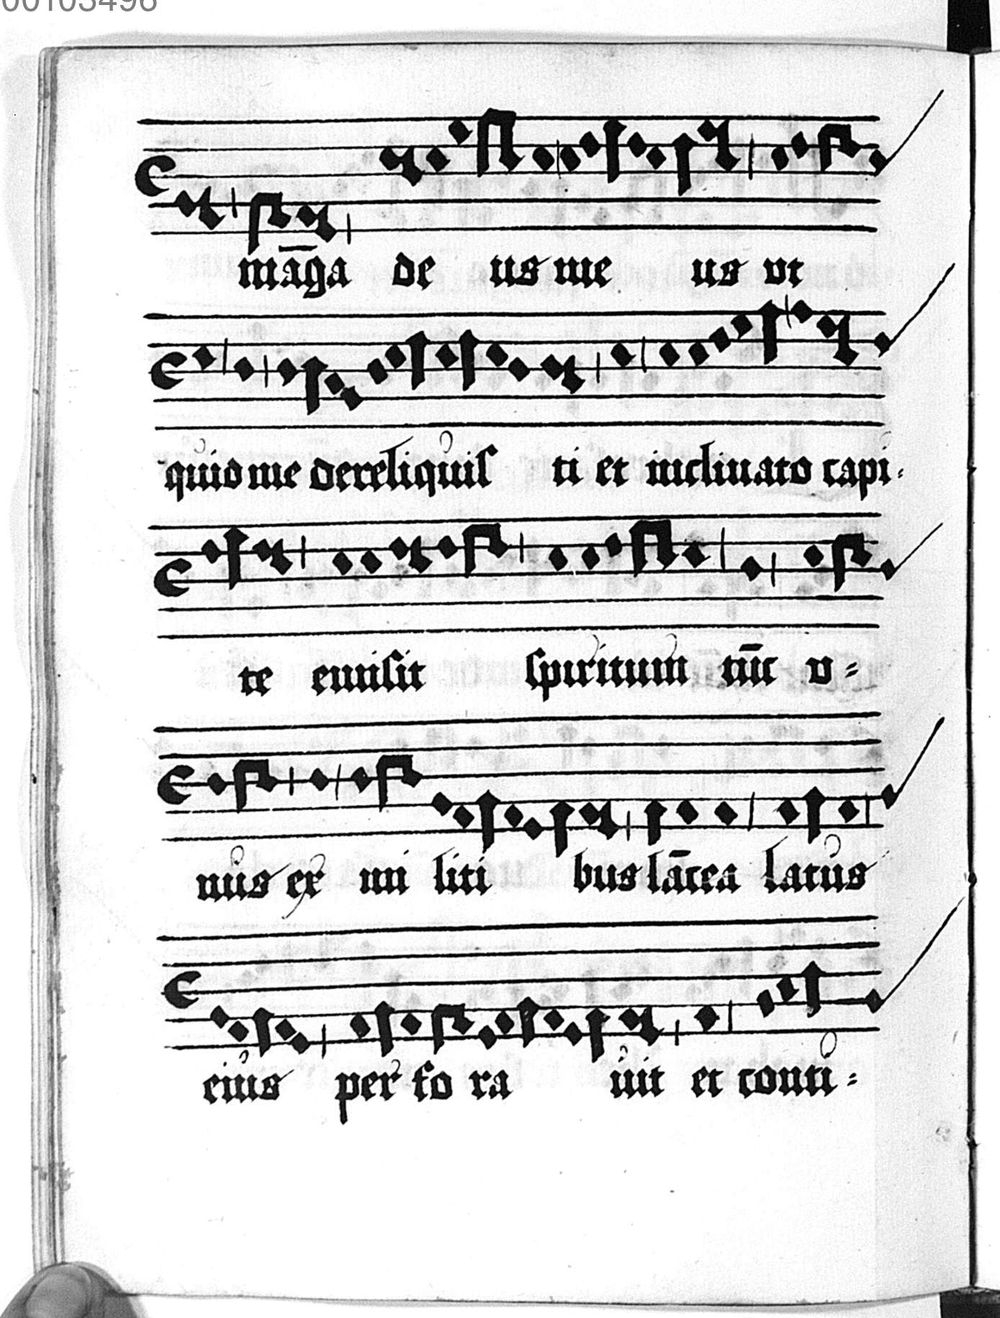 00103496
māga de us me us vt
quid me dereliquis ti et inclinato capi-
te emisit spiritum tūc v-
nus ex mi liti bus lācea latus
eius per fo ra uit et conti-